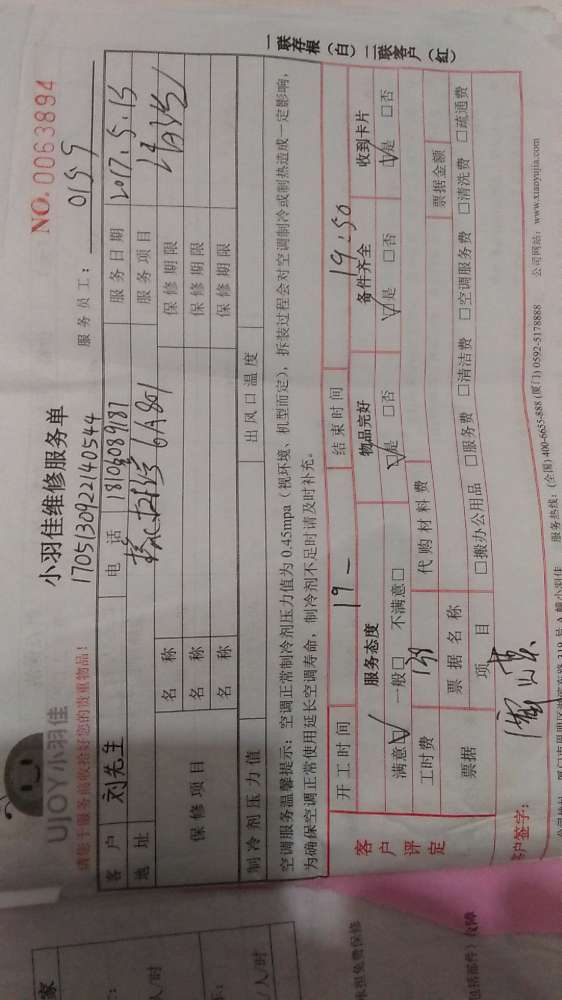 UJOY小羽佳
小羽佳维修服务单
NO. 0063894
请您于服务前收拾好您的贵重物品!
1705130922140544
服务员工: 0155
客户 刘先生 电话 18106089187 服务日期 2017.5.13
地址 6A801 服务项目
保修项目
名称 保修期限
名称 保修期限
名称 保修期限
制冷剂压力值 出风口温度
空调服务温馨提示:空调正常制冷剂压力值为 0.45mpa(视环境、机型而定),拆装过程会对空调制冷或制热造成一定影响,
为确保空调正常使用延长空调寿命,制冷剂不足时请及时补充。
客户评定
开工时间 19 - 结束时间 19:50
服务态度 物品完好 备件齐全 收到卡片
满意☑ 一般□ 不满意□ ☑是 □否 ☑是 □否 ☑是 □否
工时费 138 代购材料费
票据 票据名称 票据金额
项目 □搬办公用品 □服务费 □清洁费 □空调服务费 □清洗费 □疏通费
客户签字:
服务热线:(全国) 400-6655-888 (厦门) 0592-5178888 公司网站:www.xiaoyujia.com
一联存根(白) 二联客户(红)
家
人/时
/人/时
包括部件)故障